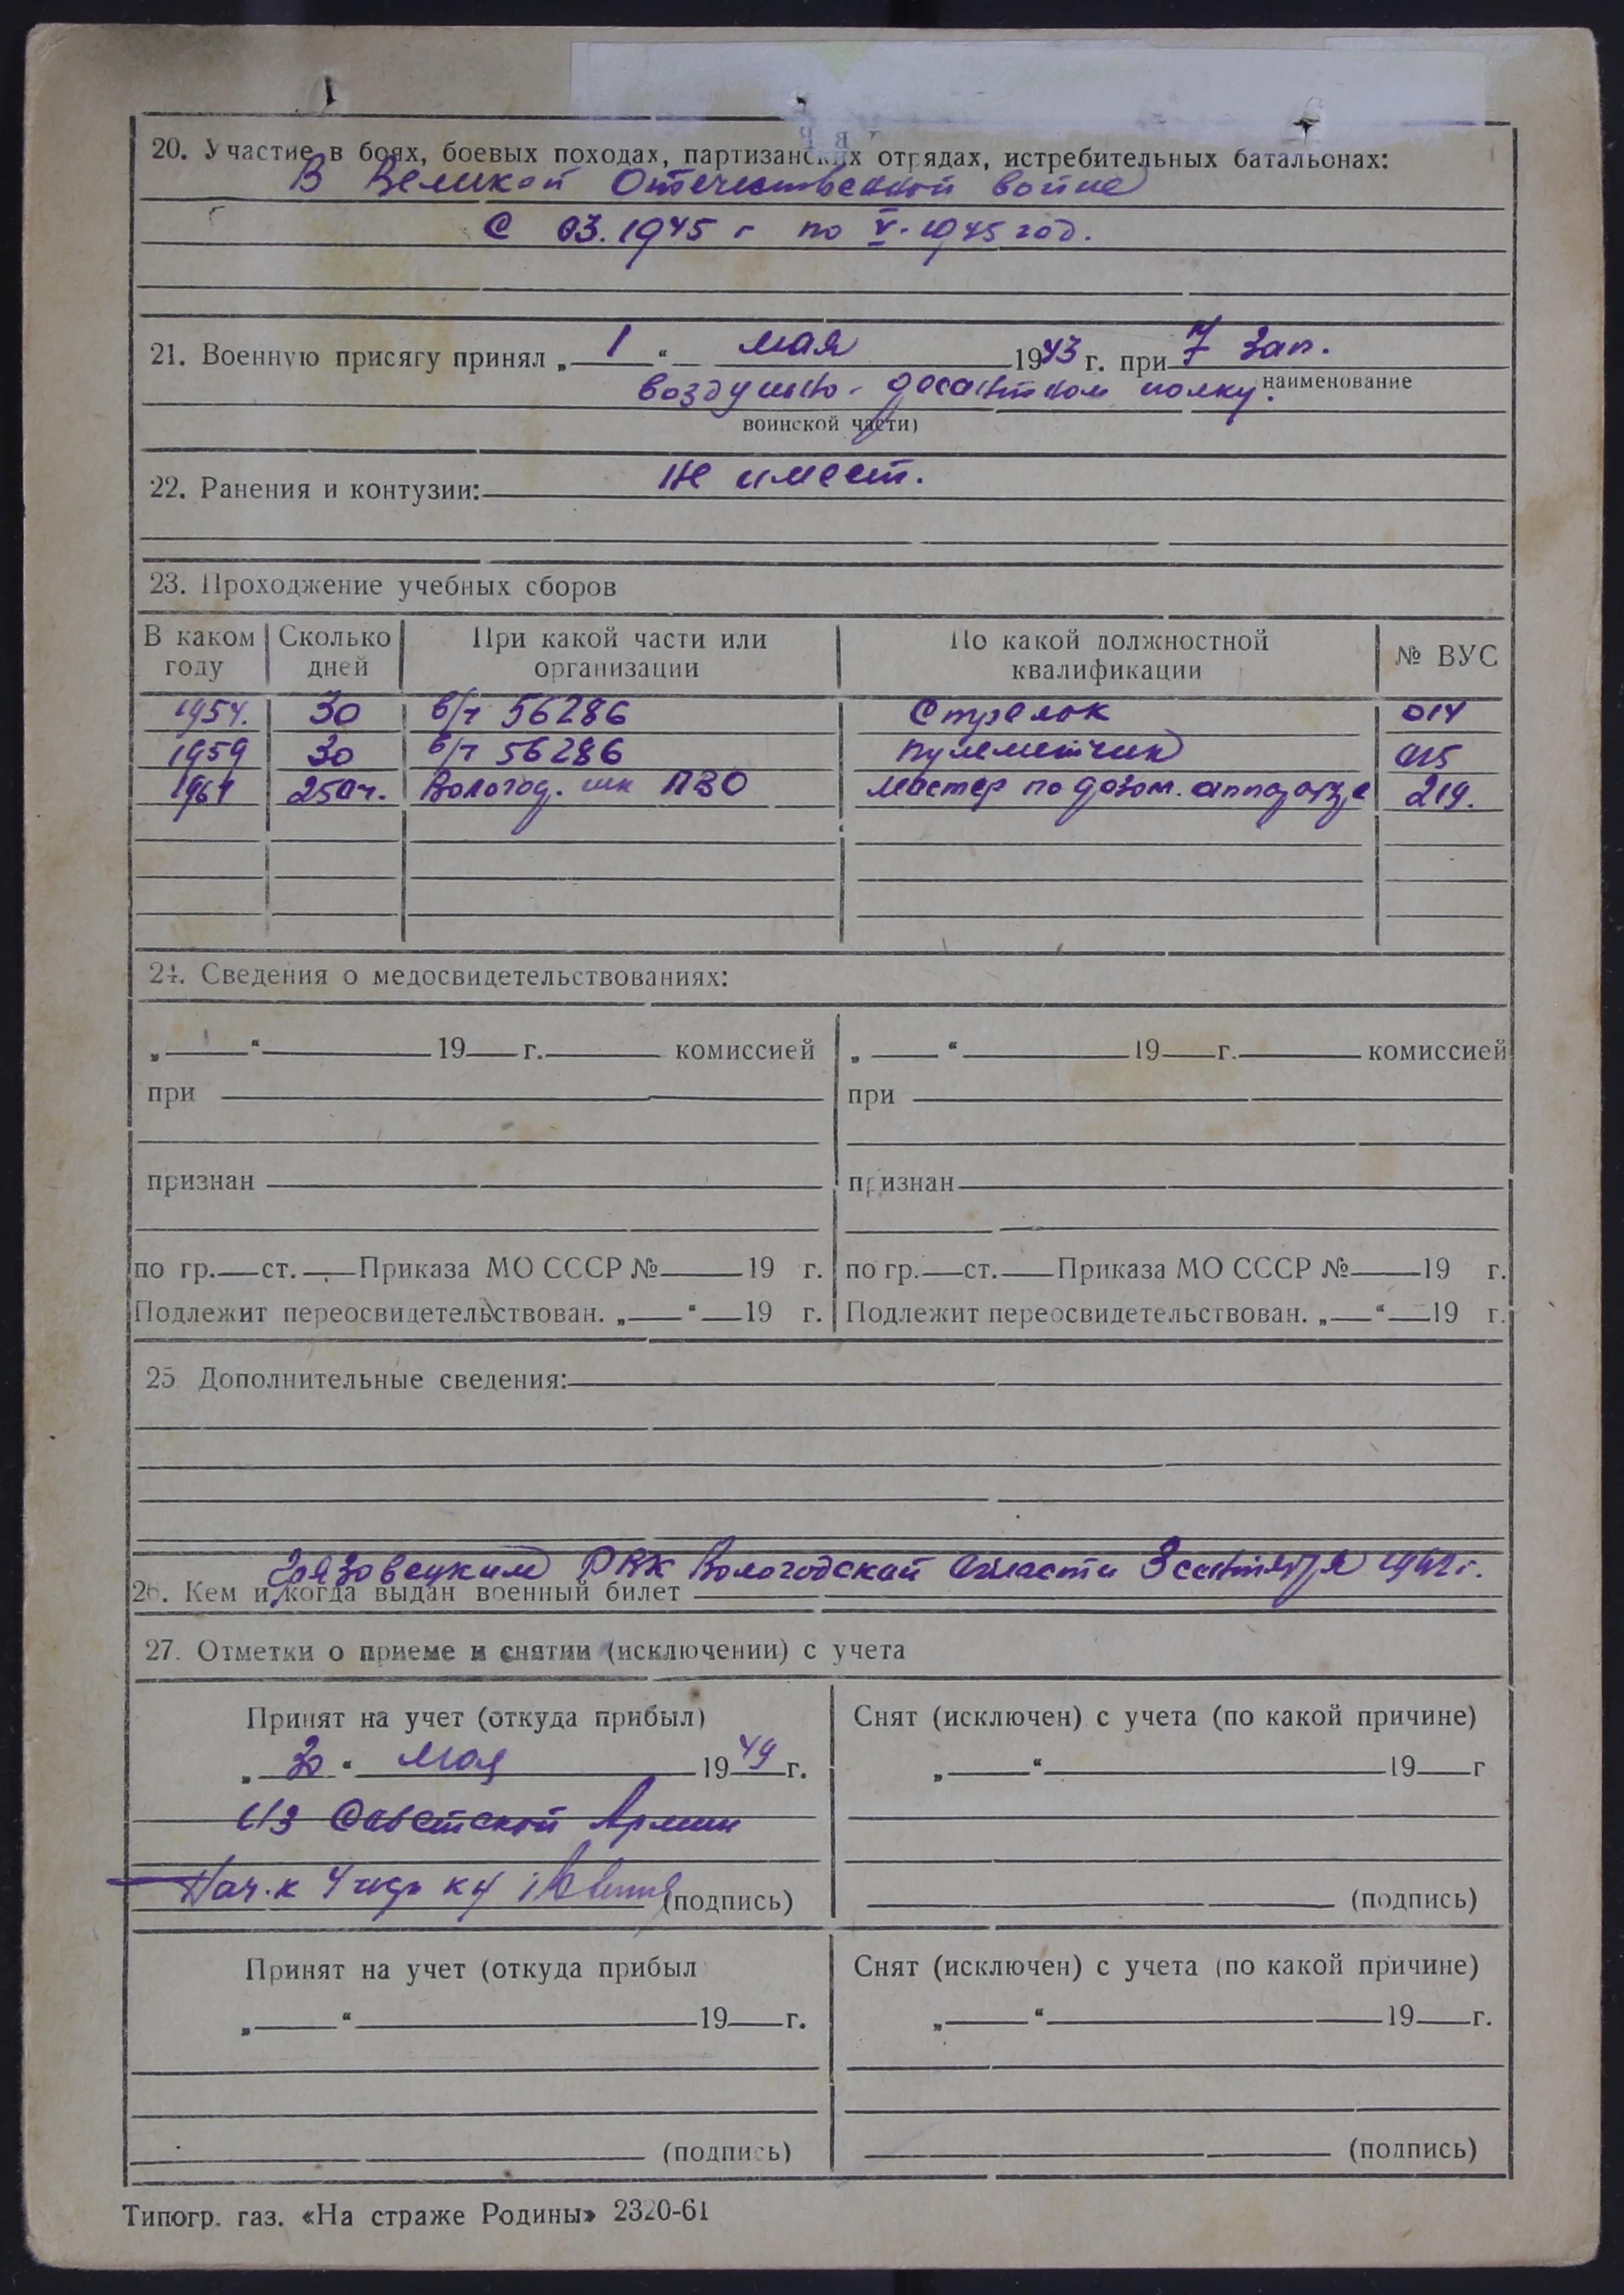 20. Участие в боях, боевых походах, партизанских отрядах, истребительных батальонах:
В Великой Отечественной войне
С 03.1945 г по V-1945 год.
21. Военную присягу принял „ 1 “ мая 1943 г. при 7 Зап.
воздушно-десантном полку. наименование
воинской части)
22. Ранения и контузии: Не имеет.
23. Прохождение учебных сборов
В каком году Сколько дней При какой части или организации По какой должностной квалификации № ВУС
1954. 30 в/ч 56286 Стрелок 014
1959 30 в/ч 56286 пулеметчик 015
1961 250ч. Вологод. шк ПВО мастер по дозом. аппаратуре 219.
24. Сведения о медосвидетельствованиях:
„ “ 19 г. комиссией „ “ 19 г. комиссией
при при
признан признан
по гр. ст. Приказа МО СССР № 19 г. по гр. ст. Приказа МО СССР № 19 г.
Подлежит переосвидетельствован. „ “ 19 г. Подлежит переосвидетельствован. „ “ 19 г.
25 Дополнительные сведения:
Грязовецким РВК Вологодской области 3 сентября г.
26. Кем и когда выдан военный билет
27. Отметки о приеме и снятии (исключении) с учета
Принят на учет (откуда прибыл) Снят (исключен) с учета (по какой причине)
„ 30 “ мая 1949 г. „ “ 19 г
из Советской Армии
Нач-к 4 (подпись) (подпись)
Принят на учет (откуда прибыл Снят (исключен) с учета (по какой причине)
„ “ 19 г. „ “ 19 г.
(подпись) (подпись)
Типогр. газ. «На страже Родины» 2320-61